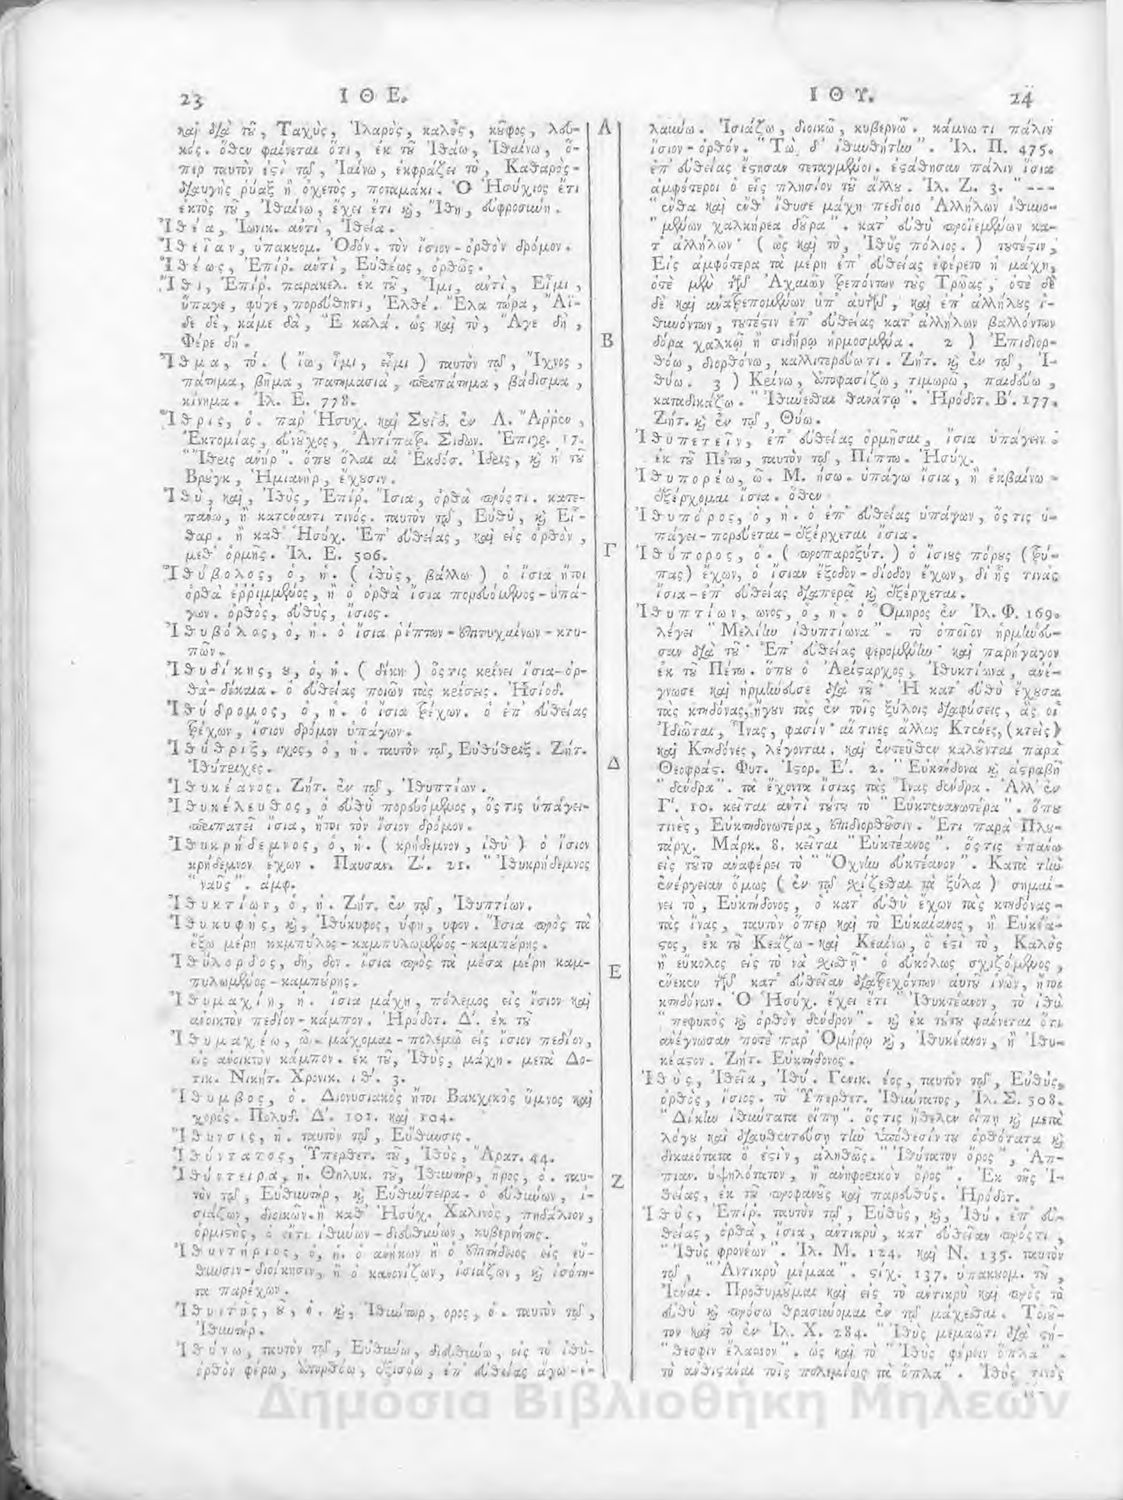 23 ΙΘΕ.
καὶ διὰ τῦ, Ταχὺς, Ἱλαρὸς, καλὸς, κῦφος, λευ-
κός. ὅθεν φαίνεται ὅτι, ἐκ τῦ Ἰθάω, Ἰθαίνω, ὅ-
περ ταυτόν ἐςι τῷ, Ἰαίνω, ἐκφράζει τὸ, Καθαρὸς-
διαυγὴς ῥύαξ ἢ ὀχετὸς, ποταμάκι. Ὁ Ἡσύχιος ἔτι
ἐκτὸς τῦ, Ἰθαίνω, ἔχει ἔτι κὶ, Ἴθη, εὐφροσιύη.
Ἰθέα, Ἰωνικ. αὐτὶ, Ἰθεῖα.
Ἰθεῖαν, ὑπακυομ. Ὁδόν. τὸν ἴσιον-ὀρθὸν δρόμον.
Ἰθέως, Ἐπίρ. αὐτὶ, Εὐθέως, ὀρθῶς.
Ἴθι, Ἐπίρ. παρακελ. ἐκ τῦ, Ἴμι, αὐτὶ, Εἶμι,
ὕπαγε, φύγε, πορεύθητι, Ἐλθέ. Ἔλα τώρα, Ἄϊ-
δε δὲ, κάμε δὰ, Ἒ καλά. ὡς καὶ τὸ, Ἄγε δὴ,
Φέρε δή.
Ἴθμα, τό. (ἴω, ἶμι, εἶμι) ταυτὸν τῷ, Ἴχνος,
πάτημα, βῆμα, πατημασία, περιπάτημα, βάδισμα,
κίνημα. Ἰλ. Ε. 778.
Ἴθρις, ὁ. παρ' Ἡσυχ. καὶ Σουΐδ. ἐν Λ. Ἄῤῥεν,
Ἐκτομίας, εὐνῦχος, Ἀντίπατρ. Σιδων. Ἐπιγρ. 17.
"Ἴθρις ἀνήρ". ὅπυ ὅλαι αἱ Ἐκδόσ. Ἴδρις, κὶ ἡ τῦ
Βρύγκ, Ἡμιανὴρ, ἔχυσιν.
Ἰθὺ, καὶ, Ἰθὺς, Ἐπίρ. Ἴσια, ὀρθὰ πρός τι. κατε-
πάνω, ἢ κατέναντι τινός. ταυτὸν τῷ, Εὐθὺ, κὶ Εἶ-
θαρ. ἢ καθ' Ἡσυχ. Ἐπ' εὐθείας, καὶ εἰς ὀρθὸν,
μεθ' ὁρμῆς. Ἰλ. Ε. 506.
Ἰθύβολος, ὁ, ἡ. (ἰθὺς, βάλλω) ὁ ἴσια ἤτοι
ὀρθὰ ἐῤῥιμμένος, ἢ ὁ ὀρθὰ ἴσια πορευόμενος-ὑπά-
γων. ὀρθὸς, εὐθὺς, ἴσιος.
Ἰθυβόλος, ὁ, ἡ. ὁ ἴσια ῥίπτων-ἐπιτυχαίνων-κτυ-
πῶν.
Ἰθυδίκης, υ, ὁ, ἡ. (δίκη) ὅςτις κρίνει ἴσια-ὀρ-
θὰ-δίκαια. ὁ εὐθείας ποιῶν τὰς κρίσεις. Ἡσίοδ.
Ἰθύδρομος, ὁ, ἡ. ὁ ἴσια τρέχων. ὁ ἐπ' εὐθείας
τρέχων, ἴσιον δρόμον ὑπάγων.
Ἰθύθριξ, ιχος, ὁ, ἡ. ταυτὸν τῷ, Εὐθύθριξ. Ζήτ.
Ἰθύτριχες.
Ἰθυκέανος. Ζήτ. ἐν τῷ, Ἰθυπτίων.
Ἰθυκέλευθος, ὁ εὐθὺ πορευόμενος, ὅςτις ὑπάγει-
περιπατεῖ ἴσια, ἤτοι τὸν ἴσιον δρόμον.
Ἰθυκρήδεμνος, ὁ, ἡ. (κρήδεμνον, ἰθὺ) ὁ ἴσιον
κρήδεμνον ἔχων. Παυσαν. Ζ'. 21. "Ἰθυκρήδεμνος
"ναῦς". ἀμφ.
Ἰθυκτίων, ὁ, ἡ. Ζήτ. ἐν τῷ, Ἰθυπτίων.
Ἰθυκυφὴς, κὶ, Ἰθύκυφος, ύφη, υφον. Ἴσια πρὸς τὰ
ἔξω μέρη καμπύλος-καμπυλωμένος-καμπύρης.
Ἰθύλορδος, δη, δον. ἴσια πρὸς τὰ μέσα μέρη καμ-
πυλωμένος-καμπύρης.
Ἰθυμαχίη, ἡ. ἴσια μάχη, πόλεμος εἰς ἴσιον καὶ
ἀνοικτὸν πεδίον-κάμπον. Ἡρόδοτ. Δ'. ἐκ τῦ
Ἰθυμαχέω, ῶ. μάχομαι-πολεμῶ εἰς ἴσιον πεδίον,
εἰς ἀνοικτὸν κάμπον. ἐκ τῦ, Ἰθὺς, μάχη. μετὰ Δο-
τικ. Νικήτ. Χρονικ. ιθ'. 3.
Ἴθυμβος, ὁ. Διονυσιακὸς ἤτοι Βακχικὸς ὕμνος καὶ
χορός. Πολυδ. Δ'. 101. καὶ 104.
Ἴθυνσις, ἡ. ταυτὸν τῷ, Εὔθυνσις.
Ἰθύντατος, Ὑπερθετ. τῦ, Ἰθὺς, Ἄρατ. 44.
Ἰθύντειρα, ἡ. Θηλυκ. τῦ, Ἰθυντὴρ, ῆρος, ὁ. ταυ-
τὸν τῷ, Εὐθυντὴρ, κὶ Εὐθύντειρα. ὁ εὐθύνων, ἰ-
σιάζων, διοικῶν. ἢ καθ' Ἡσύχ. Χαλινὸς, πηδάλιον,
ὁρμιστὴς, ὅ εἶτι ἰθύνων-διευθύνων, κυβερνήτης.
Ἰθυντήριος, ὁ, ἡ. ὁ ἀνήκων ἢ ὁ ἐπιτήδειος εἰς εὔ-
θυνσιν-διοίκησιν, ἢ ὁ κανονίζων, ἰσιάζων, κὶ ἰσότη-
τα παρέχων.
Ἰθυντὸς, ῦ, ὁ. κὶ, Ἰθύντωρ, ορος, ὁ. ταυτὸν τῷ,
Ἰθυντήρ.
Ἰθύνω, ταυτὸν τῷ, Εὐθύνω, διευθύνω, εἰς τὸ ἰθὺ-
ὀρθὸν φέρω, ἐπορθόω, ἐξισόω, ἐπ' εὐθείας ἄγω-ἐ-
Α
Β
Γ
Δ
Ε
Ζ
ΙΘΥ. 24
λαύνω. Ἰσιάζω, διοικῶ, κυβερνῶ. κάμνω τι πάλιν
ἴσιον-ὀρθόν. "Τὼ δ' ἰθυνθήτην". Ἰλ. Π. 475.
ἐπ' εὐθείας ἔςησαν τεταγμένοι. ἐςάθησαν πάλιν ἴσια
ἀμφότεροι ὁ εἷς πλησίον τῦ ἄλλυ. Ἰλ. Ζ. 3. "---
"ἔνθα καὶ ἔνθ' ἴθυσε μάχη πεδίοιο Ἀλλήλων ἰθυνο-
"μένων χαλκήρεα δῦρα". κατ' εὐθὺ προϊεμένων κα-
τ' ἀλλήλων· (ὡς καὶ τὸ, Ἰθὺς πόλιος.) τυτέςιν,
Εἰς ἀμφότερα τὰ μέρη ἐπ' εὐθείας ἐφέρετο ἡ μάχη,
ὁτὲ μὲν τῶν Ἀχαιῶν τρεπόντων τὺς Τρῶας, ὁτὲ δὲ
δὲ καὶ ἀνατρεπομένων ὑπ' αὐτῶν, καὶ ἐπ' ἀλλήλυς ἰ-
θυνόντων, τυτέςιν ἐπ' εὐθείας κατ' ἀλλήλων βαλλόντων
δόρα χαλκῷ ἢ σιδήρῳ ἡρμοσμένα. 2) Ἐπιδιορ-
θόω, διορθόνω, καλλιτερεύω τι. Ζήτ. κὶ ἐν τῷ, Ἰ-
θύω. 3) Κρίνω, ἀποφασίζω, τιμωρῶ, παιδεύω,
καταδικάζω. "Ἰθύνεσθαι θανάτῳ". Ἡρόδοτ. Β'. 177.
Ζήτ. κὶ ἐν τῷ, Θύω.
Ἰθυπετεῖν, ἐπ' εὐθείας ὁρμῆσαι, ἴσια ὑπάγειν.
ἐκ τῦ Πέτω, ταυτὸν τῷ, Πίπτω. Ἡσύχ.
Ἰθυπορέω, ῶ. Μ. ήσω. ὑπάγω ἴσια, ἢ ἐκβαίνω-
ἐξέρχομαι ἴσια. ὅθεν
Ἰθυπόρος, ὁ, ἡ. ὁ ἐπ' εὐθείας ὑπάγων, ὅςτις ὑ-
πάγει-πορεύεται-ἐξέρχεται ἴσια.
Ἰθύπορος, ὁ. (προπαροξύτ.) ὁ ἴσιυς πόρυς (τρύ-
πας) ἔχων, ὁ ἴσιαν ἔξοδον-δίοδον ἔχων, δι' ἧς τινὰς
ἴσια-ἐπ' εὐθείας διαπερᾷ κὶ ἐξέρχεται.
Ἰθυπτίων, ωνος, ὁ, ἡ. ὁ Ὅμηρος ἐν Ἰλ. Φ. 169.
λέγει "Μελίην ἰθυπτίωνα". τὸ ὁποῖον ἡρμήνευ-
σαν διὰ τῦ· Ἐπ' εὐθείας φερομένην· καὶ παρήγαγον
ἐκ τῦ Πέτω. ὅπυ ὁ Ἀρίςαρχος, Ἰθυκτίωνα, ἀνέ-
γνωσε καὶ ἡρμήνευσε διὰ τῦ· Ἡ κατ' εὐθὺ ἔχυσα
τὰς κτηδόνας, ἤγυν τὰς ἐν τοῖς ξύλοις διαφύσεις, ἃς οἱ
Ἰδιῶται, Ἶνας, φασίν· αἵ τινες ἄλλως Κτένες, (κτεὶς)
καὶ Κτηδόνες, λέγονται. καὶ ἐντεῦθεν καλῦνται παρὰ
Θεοφράς. Φυτ. Ἱςορ. Ε'. 2. "Εὐκτήδονα κὶ ἀςραβῆ
"δένδρα". τὰ ἔχοντα ἴσιας τὰς Ἶνας δένδρα. Ἀλλ' ἐν
Γ'. 10. κεῖται αὐτὶ τύτυ τὸ "Εὐκτεανωτέρα". ὅπυ
τινὲς, Εὐκτηδονωτέρα, ἐπιδιορθῦσιν. Ἔτι παρὰ Πλυ-
τάρχ. Μάρκ. 8. κεῖται "Εὐκτέανος". ὅςτις ἐπάνω
εἰς τῦτο ἀναφέρει τὸ "Ὄχνην εὐκτέανον". Κατὰ τὴν
ἐνέργειαν ὅμως (ἐν τῷ σχίζεσθαι τὰ ξύλα) σημαί-
νει τὸ, Εὐκτήδονος, ὁ κατ' εὐθὺ ἔχων τὰς κτηδόνας-
τὰς ἶνας, ταυτὸν ὅπερ καὶ τὸ Εὐκέανος, ἢ Εὐκέα-
ςος, ἐκ τῦ Κεάζω-καὶ Κεαίνω, ὅ ἐςι τὸ, Καλὸς
ἢ εὔκολος εἰς τὸ νὰ σχισθῇ· ὁ εὐκόλως σχιζόμενος,
ἕνεκεν τῶν κατ' εὐθεῖαν διατρεχόντων αὐτῦ ἰνῶν, ἤτοι
κτηδόνων. Ὁ Ἡσύχ. ἔχει ἔτι "Ἰθυκτέανον, τὸ ἰθὺ
"πεφυκὸς κὶ ὀρθὸν δένδρον". κὶ ἐκ τύτυ φαίνεται ὅτι
ἀνέγνωσαν ποτὲ παρ' Ὁμήρῳ κὶ, Ἰθυκέανον, ἢ Ἰθυ-
κέαςον. Ζήτ. Εὐκτήδονος.
Ἰθὺς, Ἰθεῖα, Ἰθύ. Γενικ. έος, ταυτὸν τῷ, Εὐθὺς,
ὀρθὸς, ἴσιος. τὸ Ὑπερθετ. Ἰθύντατος, Ἰλ. Σ. 508.
"Δίκην ἰθύντατα εἴπῃ". ὅςτις ἤθελεν εἴπῃ κὶ μετὰ
λόγυ καὶ διαυθεντεύσῃ τὴν ὑπόθεσίν τυ ὀρθότατα κὶ
δικαιότατα ὅ ἐςὶν, ἀληθῶς. "Ἰθύτατον ὄρος", Ἀπ-
πιαν. ὑψηλότατον, ἢ ἀνηφορικὸν ὄρος". Ἐκ τῆς Ἰ-
θείας, ἐκ τῦ προφανῦς καὶ παρευθύς. Ἡρόδοτ.
Ἰθὺς, Ἐπίρ. ταυτὸν τῷ, Εὐθὺς, κὶ, Ἰθύ. ἐπ' εὐ-
θείας, ὀρθὰ, ἴσια, ἀντικρὺ, κατ' εὐθεῖαν πρός τι,
"Ἰθὺς φρονέων". Ἰλ. Μ. 124. καὶ Ν. 135. ταυτὸν
τῷ, "Ἀντικρὺ μέμαα". ςίχ. 137. ὑπακυομ. τῦ,
Ἰέναι. Προθυμῦμαι καὶ εἰς τὸ ἀντικρὺ καὶ πρὸς τὸ
εὐθὺ κὶ πρόσω θρασύνομαι ἐν τῷ μάχεσθαι. Τοιῦ-
τον καὶ τὸ ἐν Ἰλ. Χ. 284. "Ἰθὺς μεμαῶτι διὰ ςή-
"θεσφιν ἔλασσον". ὡς καὶ τὸ "Ἰθὺς φέρειν ὅπλα".
τὸ ἀνθιςάναι τοῖς πολεμίοις τὰ ὅπλα". Ἰθὺς τινὸς
Δημόσια Βιβλιοθήκη Μηλεών